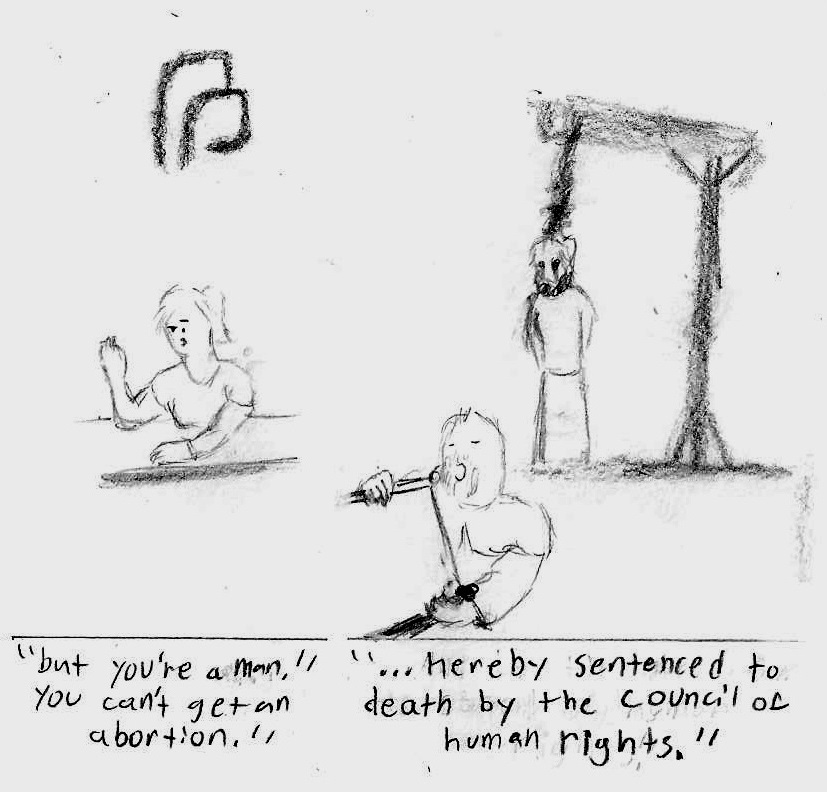 "but you're a man."
you can't get an
abortion."
"... hereby sentenced to
death by the council of
human rights."